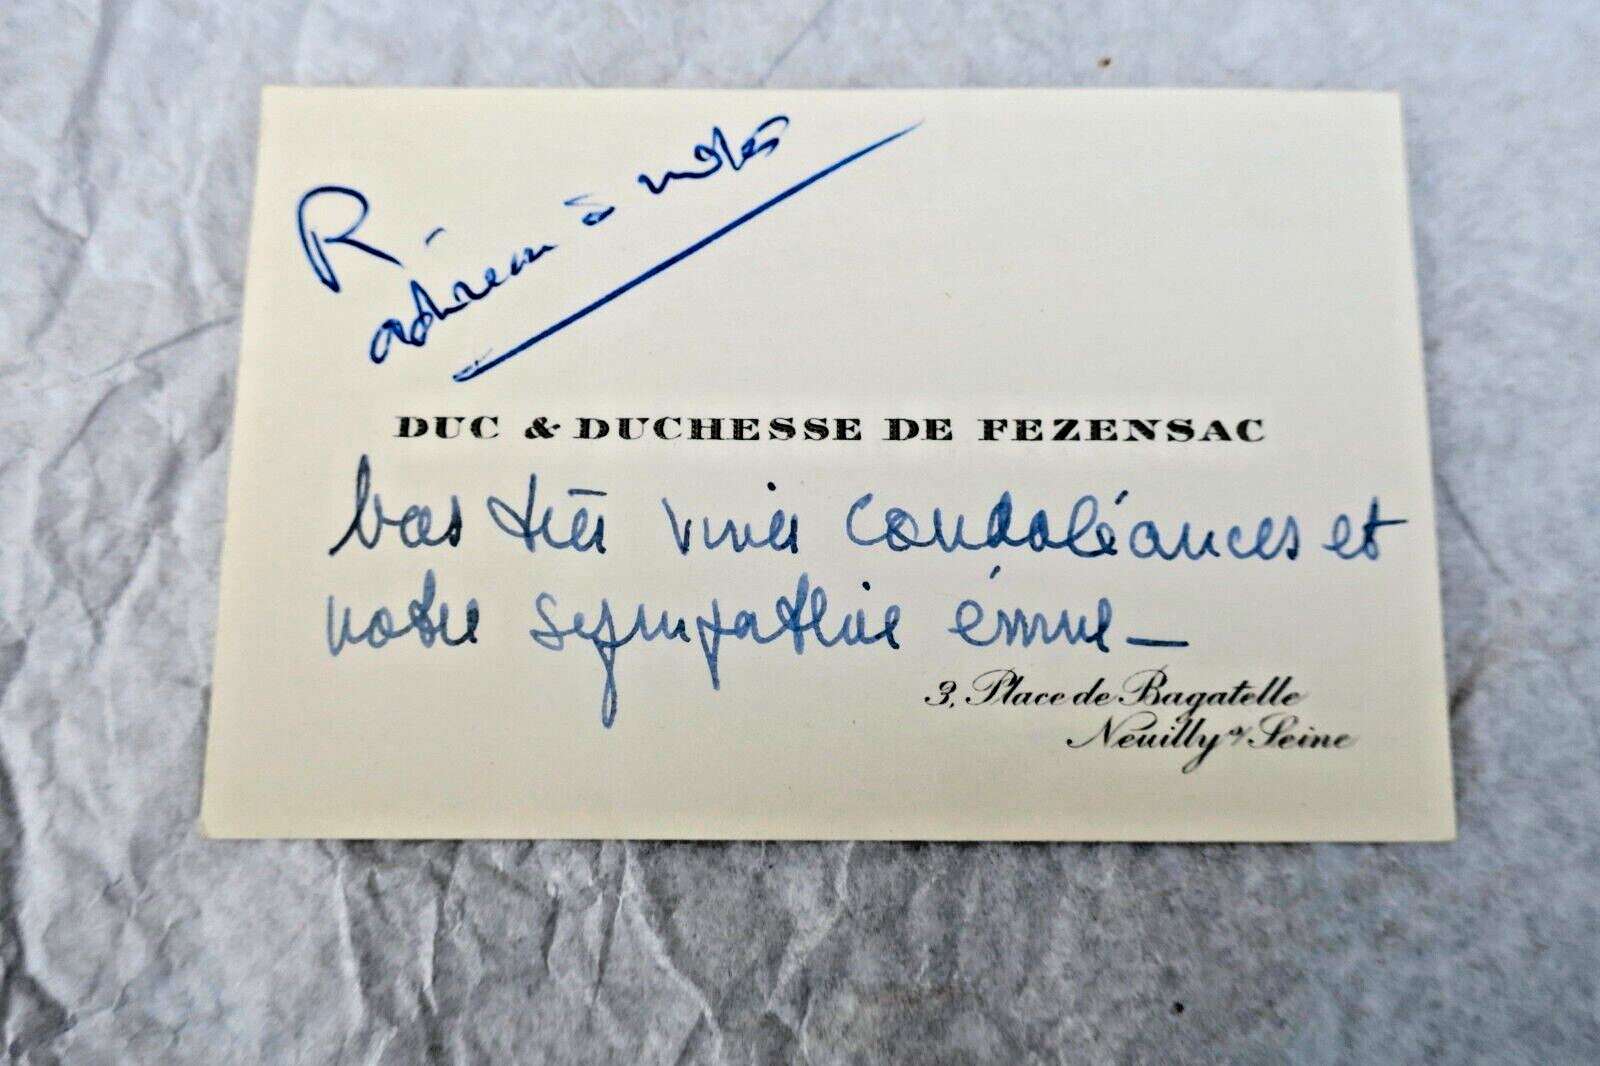 R
adresse à noter
DUC & DUCHESSE DE FEZENSAC
Nos très vives condoléances et
notre sympathie émue —
3, Place de Bagatelle
Neuilly s/ Seine